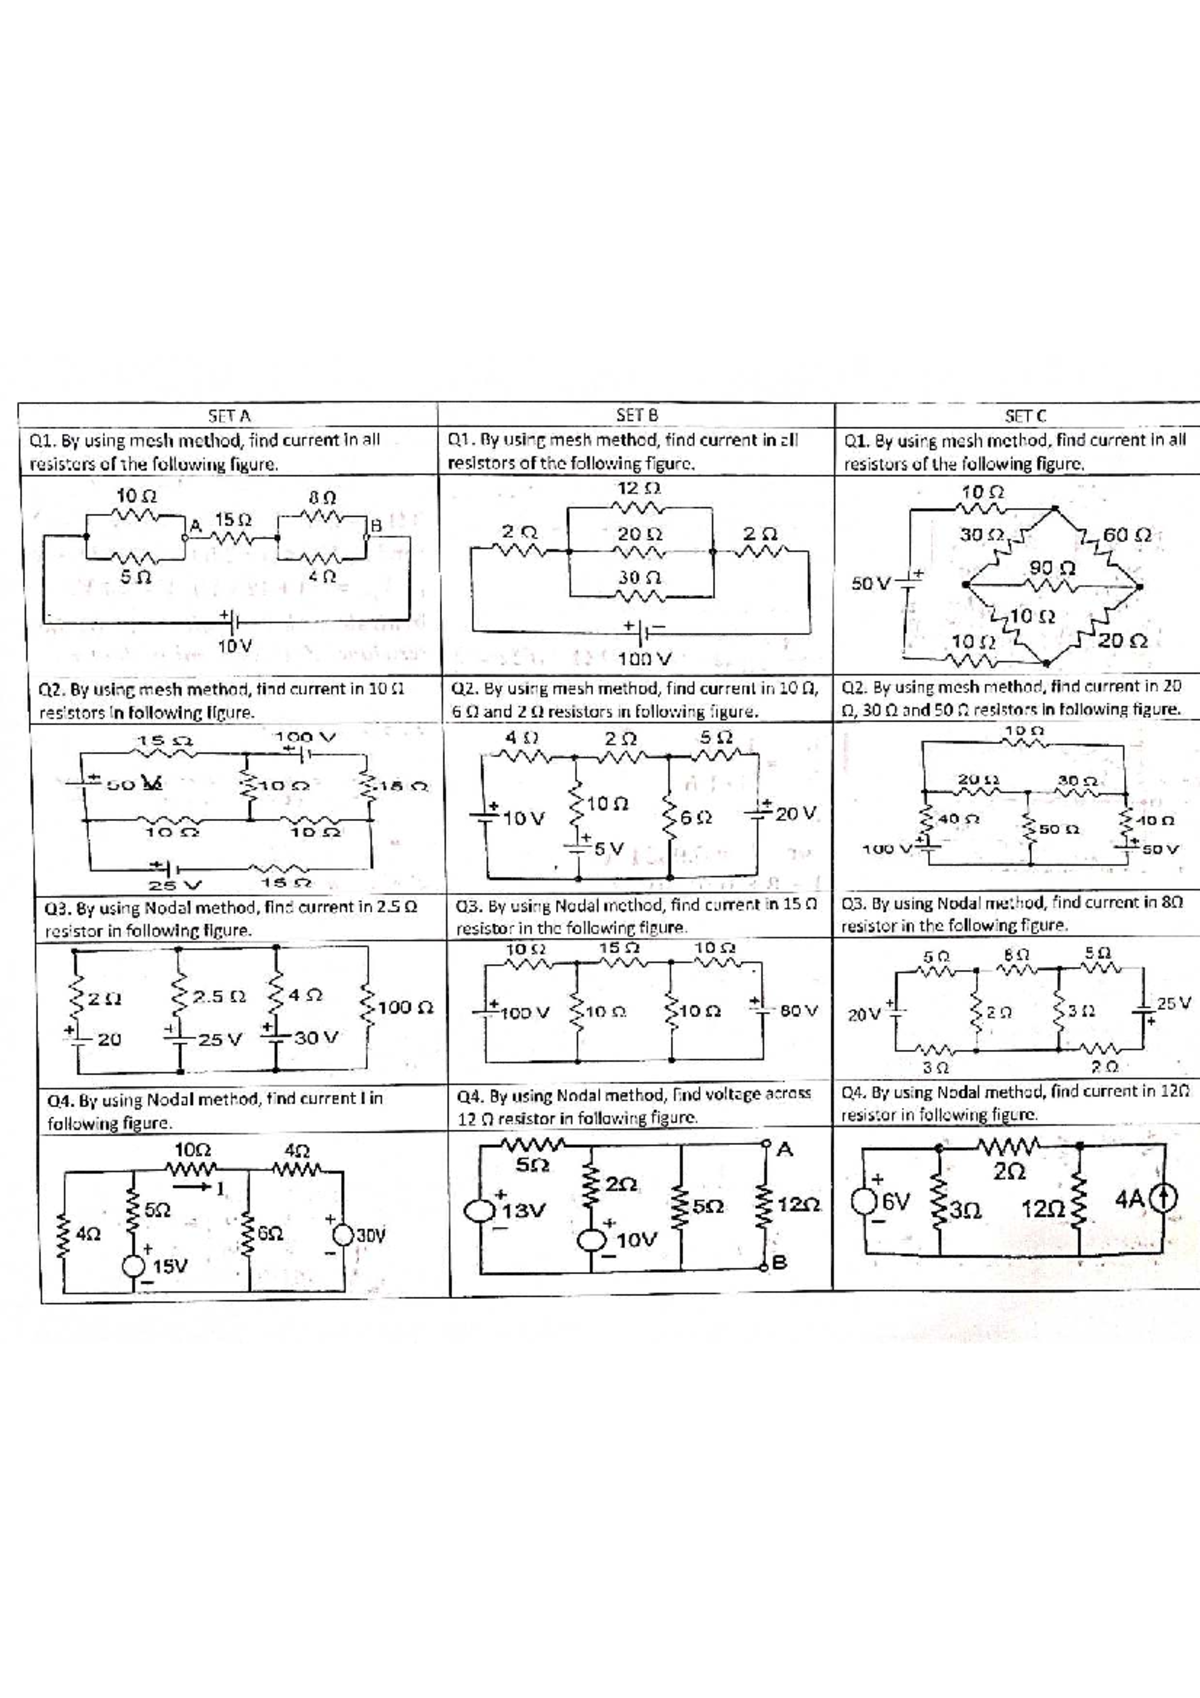 SET A
SET B
SET C
Q1. By using mesh method, find current in all
resistors of the following figure.
Q1. By using mesh method, find current in all
resistors of the following figure.
Q1. By using mesh method, find current in all
resistors of the following figure.
10 Ω
8 Ω
A
15 Ω
B
5 Ω
4 Ω
+
10 V
12 Ω
2 Ω
20 Ω
2 Ω
30 Ω
+
−
100 V
10 Ω
30 Ω
60 Ω
90 Ω
50 V
+
10 Ω
10 Ω
20 Ω
Q2. By using mesh method, find current in 10 Ω
resistors in following figure.
Q2. By using mesh method, find current in 10 Ω,
6 Ω and 2 Ω resistors in following figure.
Q2. By using mesh method, find current in 20
Ω, 30 Ω and 50 Ω resistors in following figure.
15 Ω
100 V
+
+
50 V
10 Ω
15 Ω
10 Ω
10 Ω
+
25 V
15 Ω
4 Ω
2 Ω
5 Ω
+
10 V
10 Ω
6 Ω
+
20 V
+
5 V
10 Ω
20 Ω
30 Ω
40 Ω
50 Ω
40 Ω
100 V
+
+
50 V
Q3. By using Nodal method, find current in 2.5 Ω
resistor in following figure.
Q3. By using Nodal method, find current in 15 Ω
resistor in the following figure.
Q3. By using Nodal method, find current in 8Ω
resistor in the following figure.
2 Ω
2.5 Ω
4 Ω
100 Ω
+
20
+
25 V
+
30 V
10 Ω
15 Ω
10 Ω
+
100 V
10 Ω
10 Ω
+
80 V
5 Ω
8 Ω
5 Ω
20 V
+
2 Ω
3 Ω
25 V
+
3 Ω
2 Ω
Q4. By using Nodal method, find current I in
following figure.
Q4. By using Nodal method, find voltage across
12 Ω resistor in following figure.
Q4. By using Nodal method, find current in 12Ω
resistor in following figure.
10Ω
4Ω
I
5Ω
4Ω
6Ω
+
30V
−
+
15V
−
5Ω
A
2Ω
+
13V
−
5Ω
12Ω
+
10V
−
B
2Ω
+
6V
−
3Ω
12Ω
4A